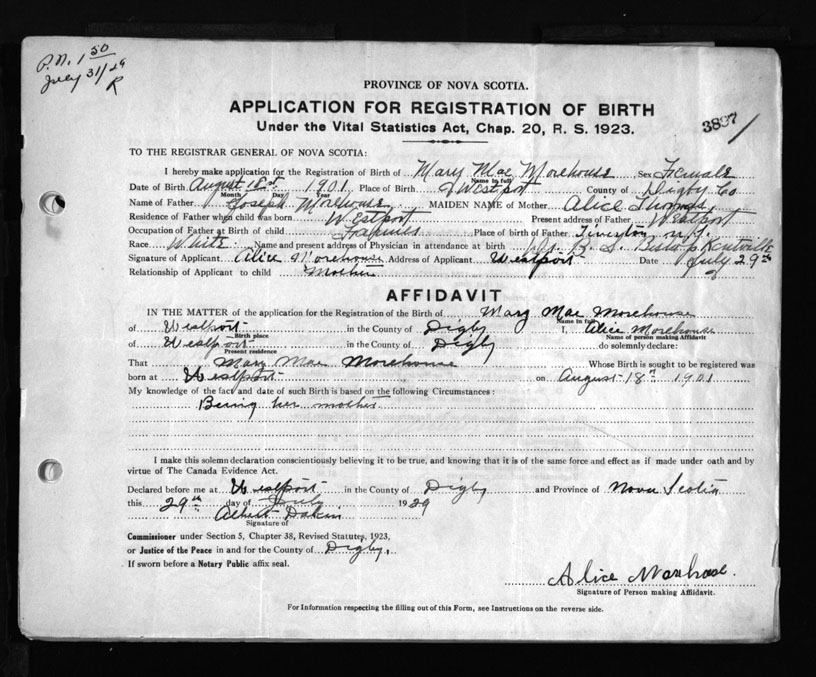 P.N. 1 50
July 31/29
R
PROVINCE OF NOVA SCOTIA.
APPLICATION FOR REGISTRATION OF BIRTH
Under the Vital Statistics Act, Chap. 20, R. S. 1923.
3897
TO THE REGISTRAR GENERAL OF NOVA SCOTIA:
I hereby make application for the Registration of Birth of Mary Mae Morehouse Sex Female
Name in full
Date of Birth August 18th 1901 Place of Birth Westport County of Digby Co
Month Day Year
Name of Father Joseph Morehouse MAIDEN NAME of Mother Alice Thomas
Residence of Father when child was born Westport Present address of Father Westport
Occupation of Father at Birth of child Place of birth of Father Tiverton N.S.
Race White Name and present address of Physician in attendance at birth Dr. B. S. Bishop Kentville
Signature of Applicant Alice Morehouse Address of Applicant Westport Date July 29th
Relationship of Applicant to child Mother
AFFIDAVIT
IN THE MATTER of the application for the Registration of the Birth of Mary Mae Morehouse
Name in full
of Westport in the County of Digby I, Alice Morehouse
Birth place Name of person making Affidavit
of Westport in the County of Digby do solemnly declare:
Present residence
That Mary Mae Morehouse Whose Birth is sought to be registered was
born at Westport on August 18th 1901
My knowledge of the fact and date of such Birth is based on the following Circumstances:
Being her mother
I make this solemn declaration conscientiously believing it to be true, and knowing that it is of the same force and effect as if made under oath and by
virtue of The Canada Evidence Act.
Declared before me at Westport in the County of Digby and Province of Nova Scotia
this 29th day of July 1929
Albert Dakin
Signature of
Commissioner under Section 5, Chapter 38, Revised Statutes, 1923,
or Justice of the Peace in and for the County of Digby.
If sworn before a Notary Public affix seal.
Alice Morehouse.
Signature of Person making Affidavit.
For Information respecting the filling out of this Form, see Instructions on the reverse side.